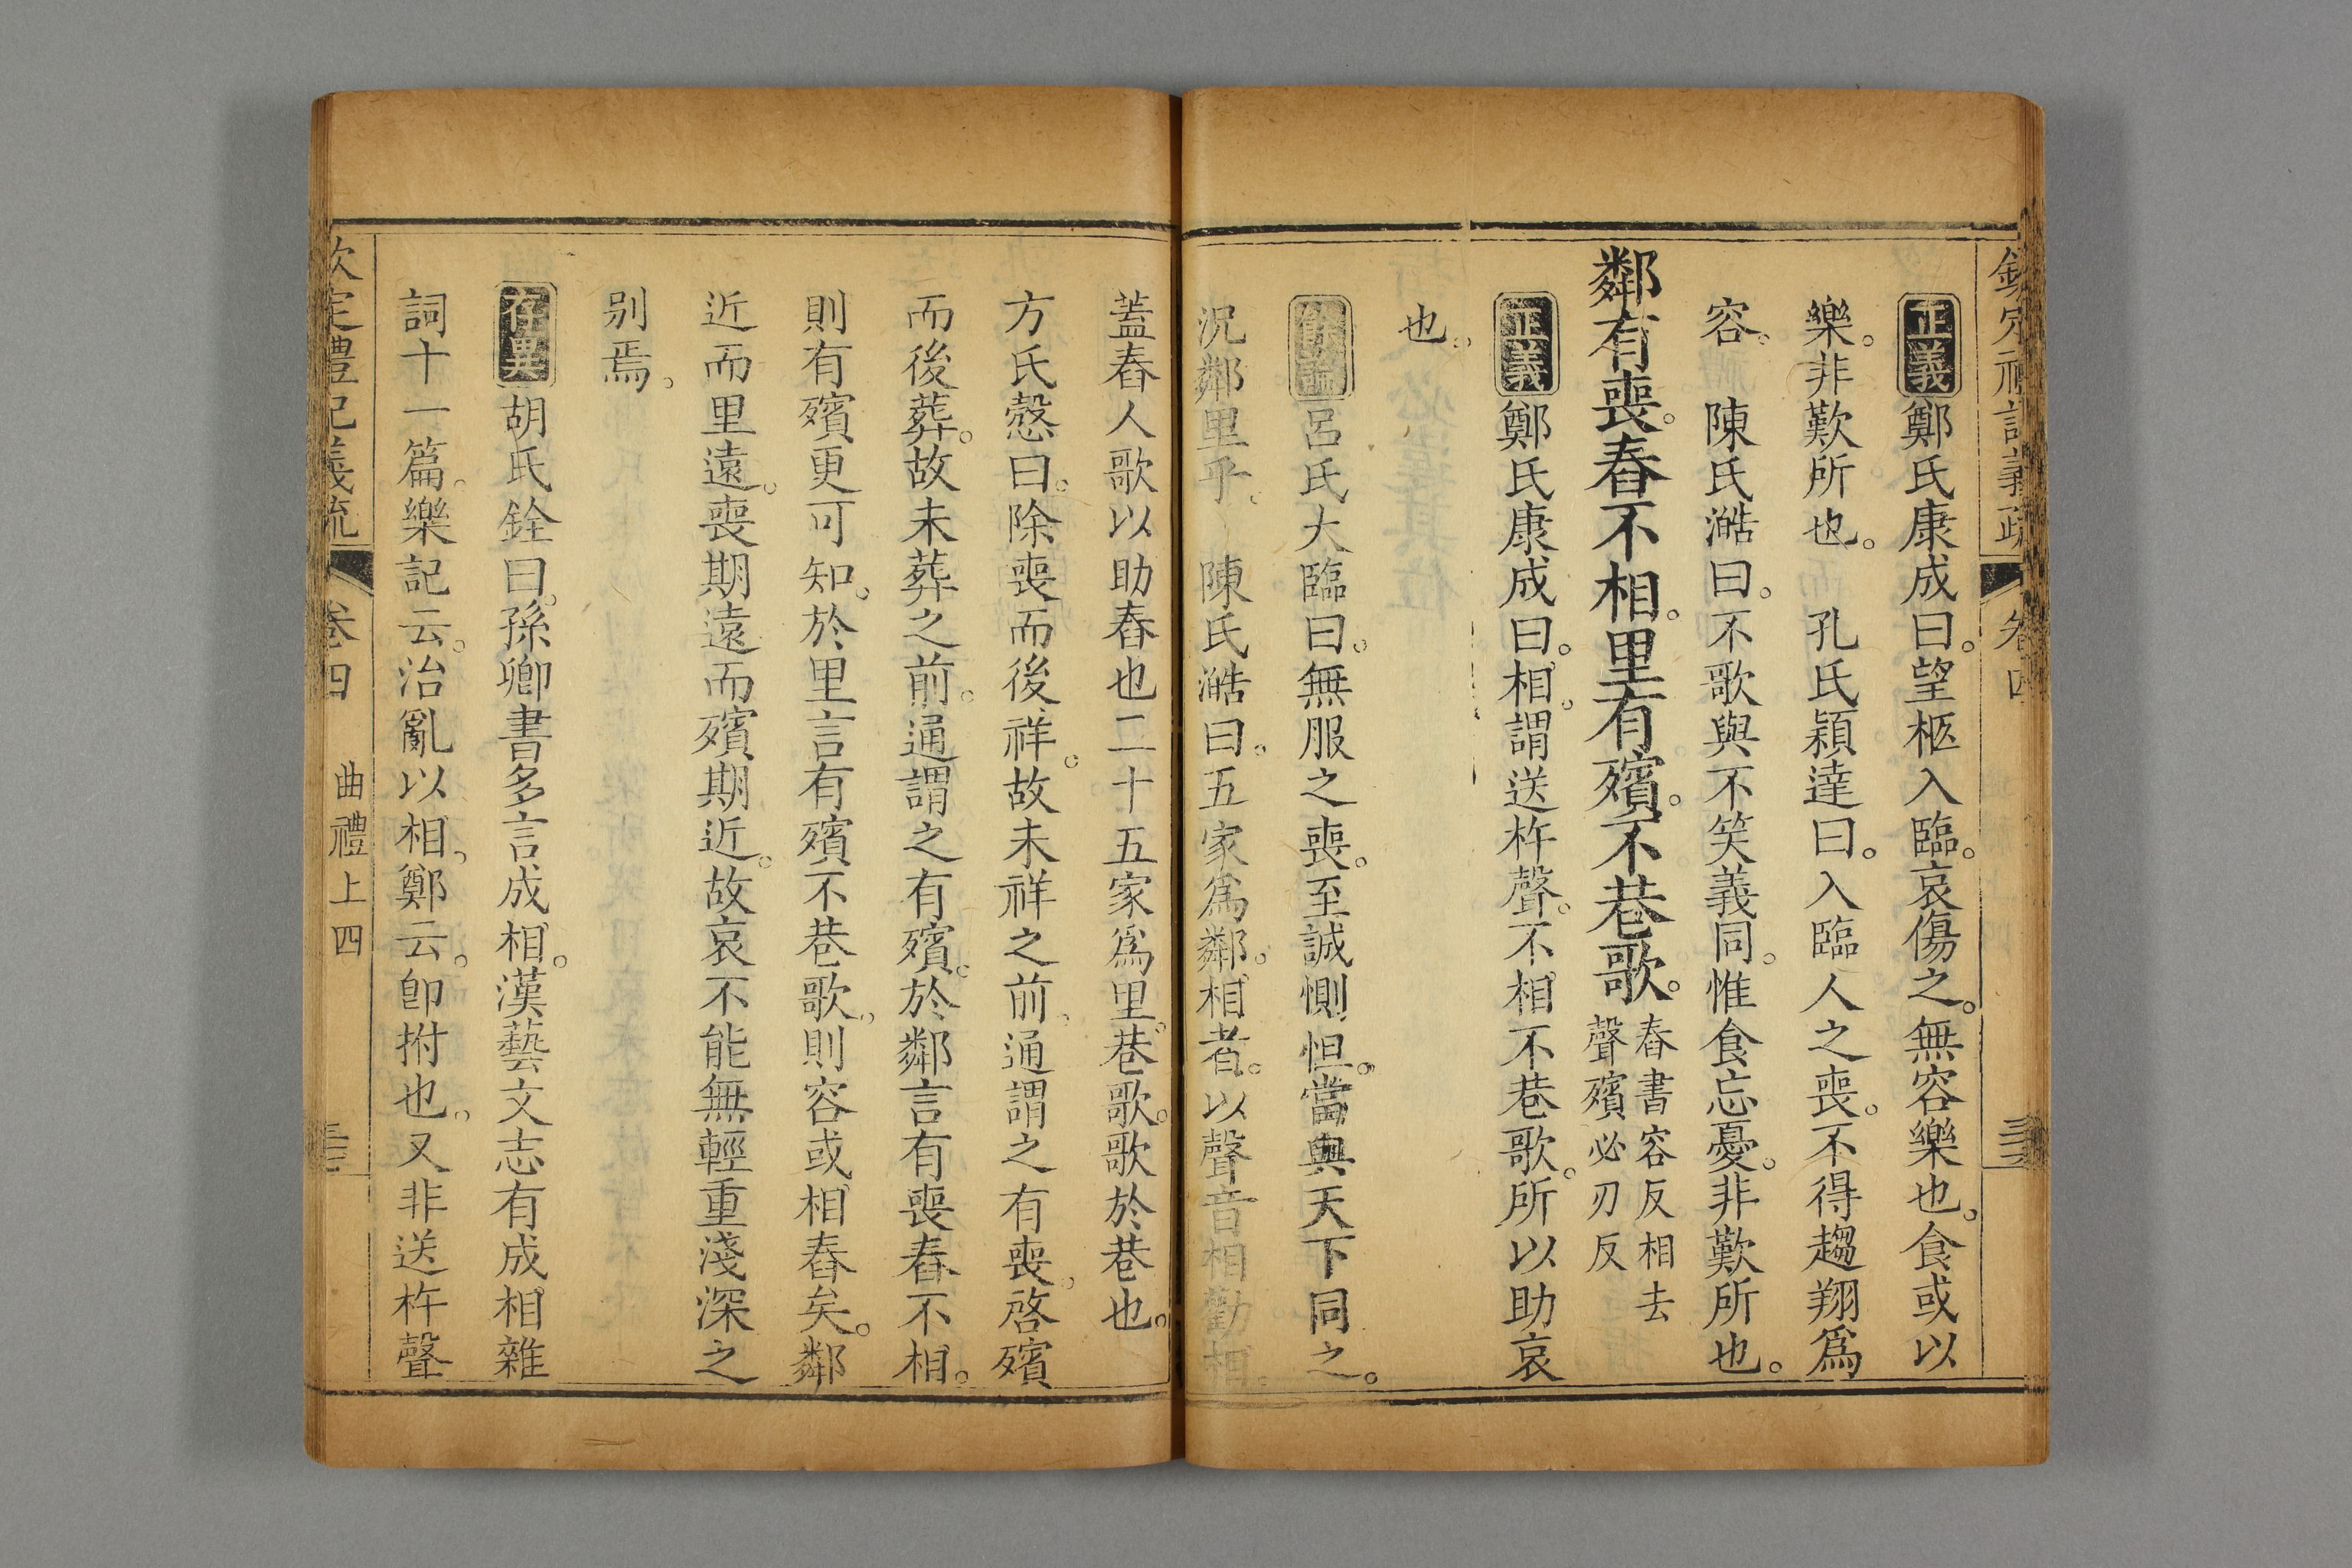 欽定禮記義疏 卷四 三
正義鄭氏康成曰。望柩入臨。哀傷之。無容樂也。食或以
樂。非歎所也。 孔氏穎達曰。入臨人之喪。不得趨翔爲
容。 陳氏澔曰。不歌與不笑義同。惟食忘憂。非歎所也。
鄰有喪。舂不相。里有殯。不巷歌。舂書容反相去
聲殯必刃反
正義鄭氏康成曰。相。謂送杵聲。不相不巷歌。所以助哀
也。
餘論呂氏大臨曰。無服之喪。至誠惻怛。當與天下同之。
況鄰里乎。 陳氏澔曰。五家爲鄰。相者。以聲音相勸相。
蓋舂人歌以助舂也二十五家爲里。巷歌。歌於巷也。
方氏慤曰。除喪而後祥。故未祥之前。通謂之有喪。啓殯
而後葬。故未葬之前。通謂之有殯。於鄰言有喪舂不相。
則有殯更可知。於里言有殯不巷歌。則容或相舂矣。鄰
近而里遠。喪期遠而殯期近。故哀不能無輕重淺深之
別焉。
存異胡氏銓曰。孫卿書多言成相。漢藝文志有成相雜
詞十一篇。樂記云。治亂以相。鄭云。卽拊也。又非送杵聲
欽定禮記義疏 卷四 曲禮上四